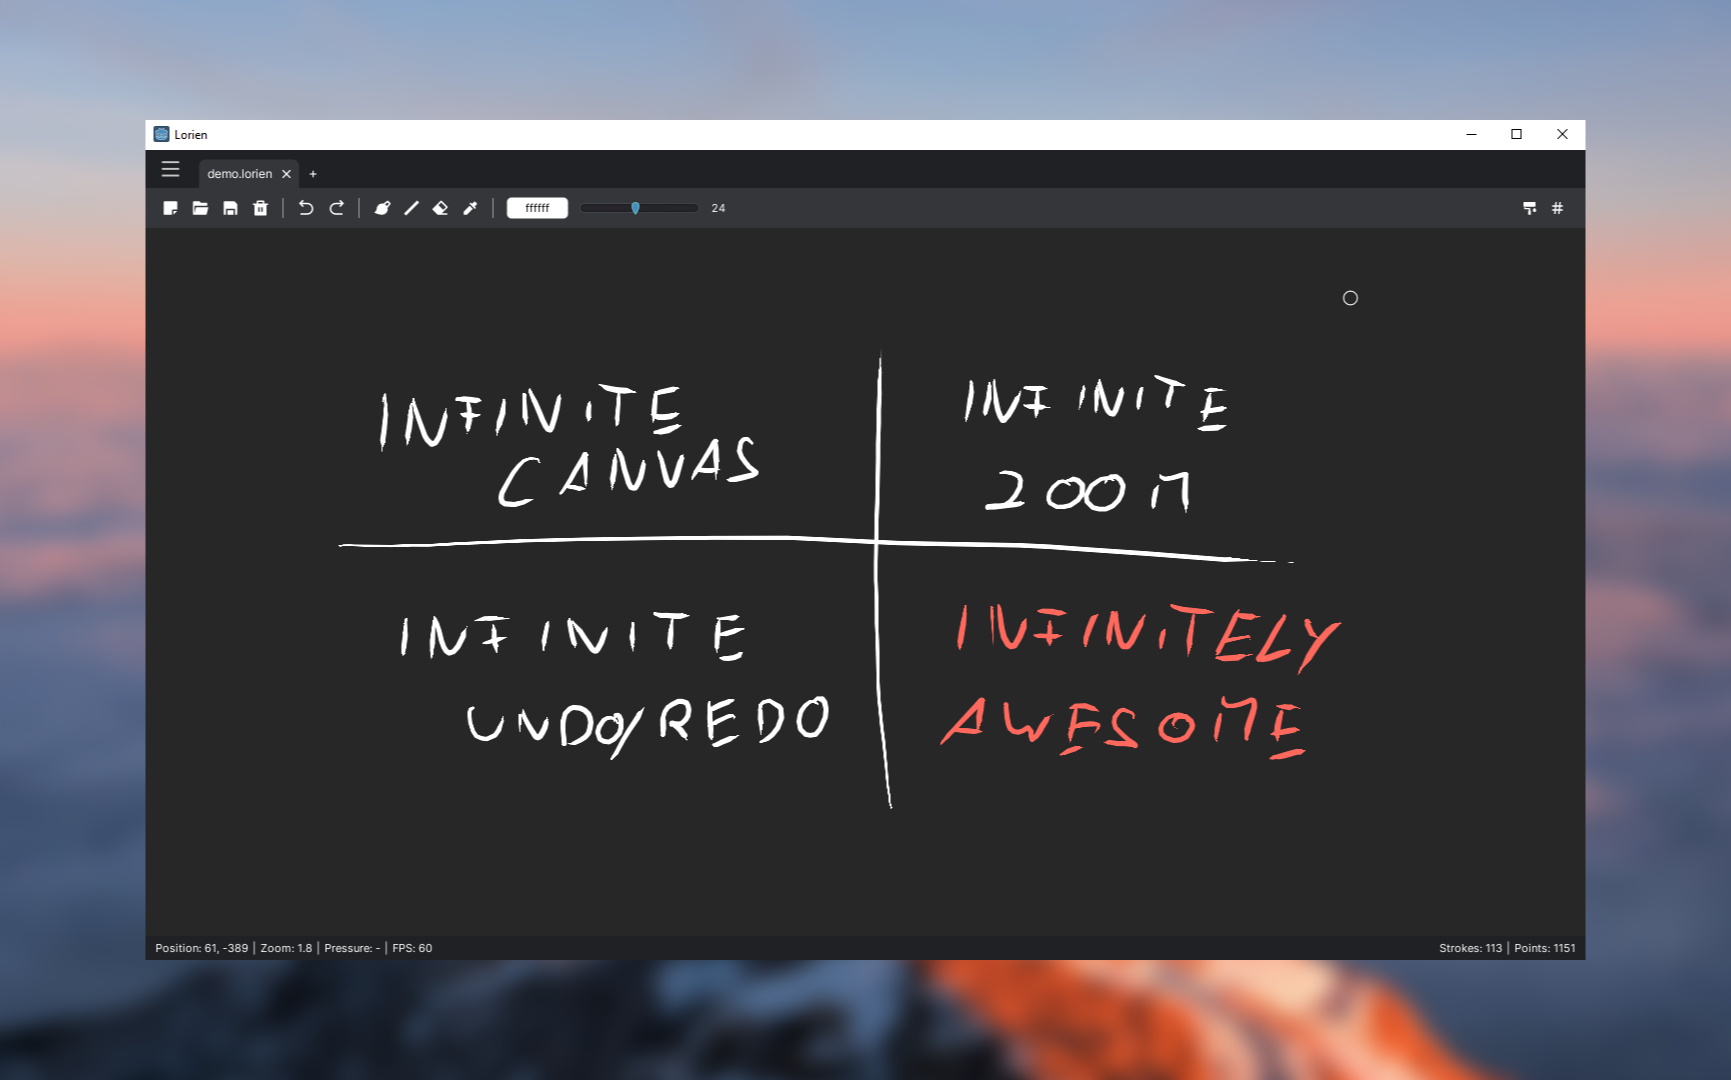 Lorien
demo.lorien
ffffff
24
INFINITE
CANVAS
INFINITE
ZOOM
INFINITE
UNDO/REDO
INFINITELY
AWESOME
Position: 61, -389 | Zoom: 1.8 | Pressure: - | FPS: 60
Strokes: 113 | Points: 1151